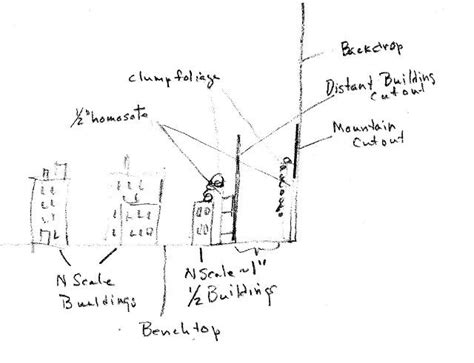 Backdrop
clumpfoliage
Distant Building
Cutout
1/2" homosote
Mountain
Cutout
N Scale
Buildings
N Scale ~1"
1/2 Buildings
Benchtop